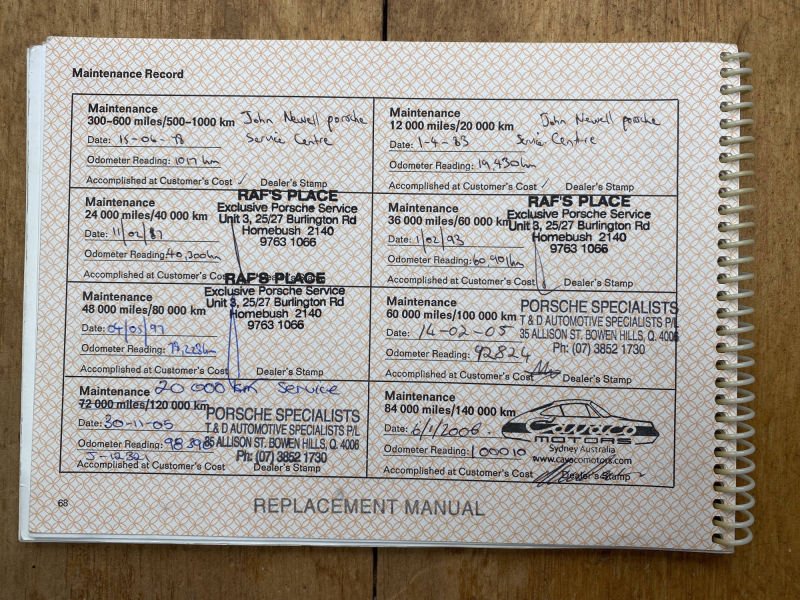 Maintenance Record
Maintenance
300-600 miles/500-1000 km
John Newell porsche
Service Centre
Date: 15-06-78
Odometer Reading: 1017 km
Accomplished at Customer's Cost ✓ Dealer's Stamp
Maintenance
12 000 miles/20 000 km
John Newell porsche
Service Centre
Date: 1-4-83
Odometer Reading: 19,430km
Accomplished at Customer's Cost ✓ Dealer's Stamp
Maintenance
24 000 miles/40 000 km
Date: 11/02/87
Odometer Reading: 40,300km
Accomplished at Customer's Cost
RAF'S PLACE
Exclusive Porsche Service
Unit 3, 25/27 Burlington Rd
Homebush 2140
9763 1066
Maintenance
36 000 miles/60 000 km
Date: 1/02/93
Odometer Reading: 60,901km
Accomplished at Customer's Cost Dealer's Stamp
RAF'S PLACE
Exclusive Porsche Service
Unit 3, 25/27 Burlington Rd
Homebush 2140
9763 1066
Maintenance
48 000 miles/80 000 km
Date: 04/05/97
Odometer Reading:
Accomplished at Customer's Cost Dealer's Stamp
RAF'S PLACE
Exclusive Porsche Service
Unit 3, 25/27 Burlington Rd
Homebush 2140
9763 1066
Maintenance
60 000 miles/100 000 km
Date: 14-02-05
Odometer Reading: 92824
Accomplished at Customer's Cost Dealer's Stamp
PORSCHE SPECIALISTS
T & D AUTOMOTIVE SPECIALISTS P/L
35 ALLISON ST. BOWEN HILLS, Q. 4006
Ph: (07) 3852 1730
Maintenance 20 000 km Service
72 000 miles/120 000 km
Date: 30-11-05
Odometer Reading: 98398
J-12321
Accomplished at Customer's Cost Dealer's Stamp
PORSCHE SPECIALISTS
T & D AUTOMOTIVE SPECIALISTS P/L
35 ALLISON ST. BOWEN HILLS, Q. 4006
Ph: (07) 3852 1730
Maintenance
84 000 miles/140 000 km
Date: 6/1/2006.
Odometer Reading: 100010
Accomplished at Customer's Cost Dealer's Stamp
Cavaco
MOTORS
Sydney Australia
www.cavacomotors.com
68
REPLACEMENT MANUAL